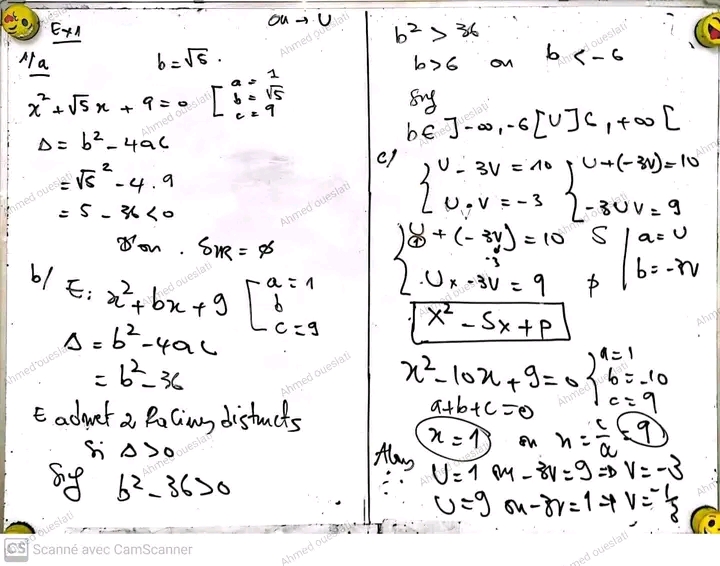 Ex1
ou → U
1/a b = √5.
x² + √5 x + 9 = 0 [ a = 1 b = √5 c = 9
Δ = b² - 4ac
= √5² - 4.9
= 5 - 36 < 0
Don . SIR = ∅
b/ E: x² + bx + 9 [ a = 1 b c = 9
Δ = b² - 4ac
= b² - 36
E admet 2 Racines distincts
Si Δ > 0
Sig b² - 36 > 0
b² > 36
b > 6 ou b < -6
Sig
b ∈ ]-∞, -6[ U ]6, +∞[
c/ { U - 3V = 10 { U + (-3V) = 10
U . V = -3 -3UV = 9
{ U + (-3V) = 10 S | a = U
-3
U x -3V = 9 P | b = -3V
X² - Sx + p
x² - 10x + 9 = 0 { a = 1 b = -10 c = 9
a + b + c = 0
x = 1 ou x = c/a = 9
Alors U = 1 ou -3V = 9 => V = -3
U = 9 ou -3V = 1 => V = -1/3
CS Scanné avec CamScanner
Ahmed oueslati